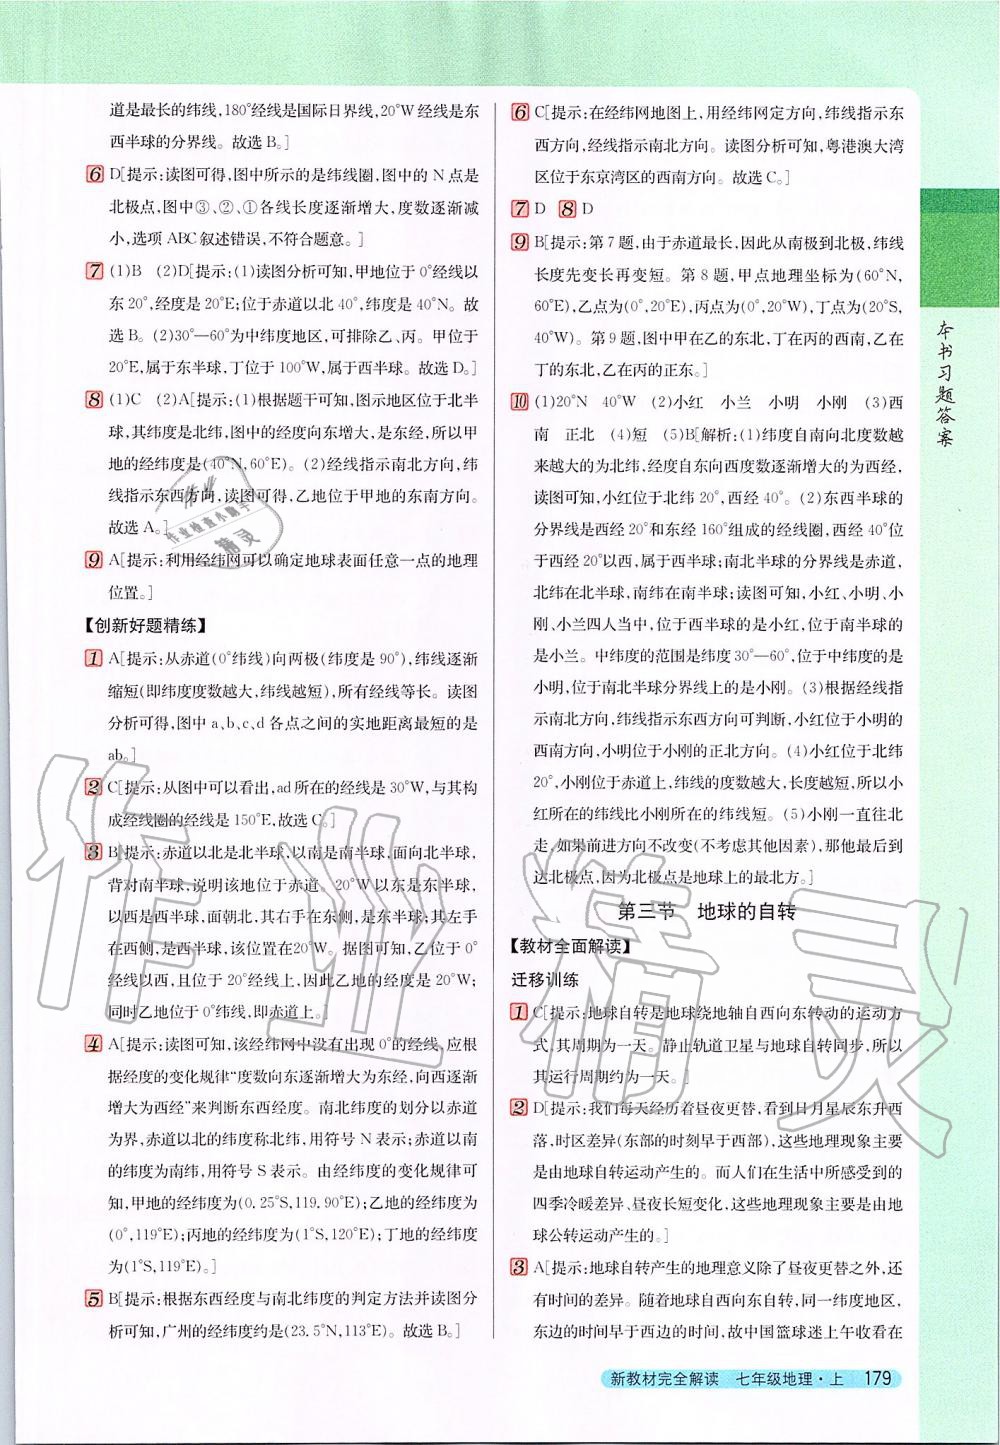 道是最长的纬线,180°经线是国际日界线,20°W经线是东
西半球的分界线。故选B。]
6 D[提示:读图可得,图中所示的是纬线圈,图中的N点是
北极点,图中③、②、①各线长度逐渐增大,度数逐渐减
小,选项ABC叙述错误,不符合题意。]
7 (1)B (2)D[提示:(1)读图分析可知,甲地位于0°经线以
东20°,经度是20°E;位于赤道以北40°,纬度是40°N。故
选B。(2)30°—60°为中纬度地区,可排除乙、丙。甲位于
20°E,属于东半球,丁位于100°W,属于西半球。故选D。]
8 (1)C (2)A[提示:(1)根据题干可知,图示地区位于北半
球,其纬度是北纬,图中的经度向东增大,是东经,所以甲
地的经纬度是(40°N,60°E)。(2)经线指示南北方向,纬
线指示东西方向,读图可得,乙地位于甲地的东南方向。
故选A。]
9 A[提示:利用经纬网可以确定地球表面任意一点的地理
位置。]
【创新好题精练】
1 A[提示:从赤道(0°纬线)向两极(纬度是90°),纬线逐渐
缩短(即纬度度数越大,纬线越短),所有经线等长。读图
分析可得,图中a、b、c、d各点之间的实地距离最短的是
ab。]
2 C[提示:从图中可以看出,ad所在的经线是30°W,与其构
成经线圈的经线是150°E,故选C。]
3 B[提示:赤道以北是北半球,以南是南半球,面向北半球,
背对南半球,说明该地位于赤道。20°W以东是东半球,
以西是西半球,面朝北,其右手在东侧,是东半球;其左手
在西侧,是西半球,该位置在20°W。据图可知,乙位于0°
经线以西,且位于20°经线上,因此乙地的经度是20°W;
同时乙地位于0°纬线,即赤道上。]
4 A[提示:读图可知,该经纬网中没有出现0°的经线,应根
据经度的变化规律“度数向东逐渐增大为东经,向西逐渐
增大为西经”来判断东西经度。南北纬度的划分以赤道
为界,赤道以北的纬度称北纬,用符号N表示;赤道以南
的纬度为南纬,用符号S表示。由经纬度的变化规律可
知,甲地的经纬度为(0.25°S,119.90°E);乙地的经纬度为
(0°,119°E);丙地的经纬度为(1°S,120°E);丁地的经纬度
为(1°S,119°E)。]
5 B[提示:根据东西经度与南北纬度的判定方法并读图分
析可知,广州的经纬度约是(23.5°N,113°E)。故选B。]
6 C[提示:在经纬网地图上,用经纬网定方向,纬线指示东
西方向,经线指示南北方向。读图分析可知,粤港澳大湾
区位于东京湾区的西南方向。故选C。]
7 D 8 D
9 B[提示:第7题,由于赤道最长,因此从南极到北极,纬线
长度先变长再变短。第8题,甲点地理坐标为(60°N,
60°E),乙点为(0°,20°E),丙点为(0°,20°W),丁点为(20°S,
40°W)。第9题,图中甲在乙的东北,丁在丙的西南,乙在
丁的东北,乙在丙的正东。]
10 (1)20°N 40°W (2)小红 小兰 小明 小刚 (3)西
南 正北 (4)短 (5)B[解析:(1)纬度自南向北度数越
来越大的为北纬,经度自东向西度数逐渐增大的为西经,
读图可知,小红位于北纬20°,西经40°。(2)东西半球的
分界线是西经20°和东经160°组成的经线圈,西经40°位
于西经20°以西,属于西半球;南北半球的分界线是赤道,
北纬在北半球,南纬在南半球;读图可知,小红、小明、小
刚、小兰四人当中,位于西半球的是小红,位于南半球的
是小兰。中纬度的范围是纬度30°—60°,位于中纬度的是
小明,位于南北半球分界线上的是小刚。(3)根据经线指
示南北方向,纬线指示东西方向可判断,小红位于小明的
西南方向,小明位于小刚的正北方向。(4)小红位于北纬
20°,小刚位于赤道上,纬线的度数越大,长度越短,所以小
红所在的纬线比小刚所在的纬线短。(5)小刚一直往北
走,如果前进方向不改变(不考虑其他因素),那他最后到
达北极点,因为北极点是地球上的最北方。]
第三节 地球的自转
【教材全面解读】
迁移训练
1 C[提示:地球自转是地球绕地轴自西向东转动的运动方
式,其周期约为一天。静止轨道卫星与地球自转同步,所以
其运行周期约为一天。]
2 D[提示:我们每天经历着昼夜更替,看到日月星辰东升西
落,时区差异(东部的时刻早于西部),这些地理现象主要
是由地球自转运动产生的。而人们在生活中所感受到的
四季冷暖差异、昼夜长短变化,这些地理现象主要是由地
球公转运动产生的。]
3 A[提示:地球自转产生的地理意义除了昼夜更替之外,还
有时间的差异。随着地球自西向东自转,同一纬度地区,
东边的时间早于西边的时间,故中国篮球迷上午收看在
本书习题答案
新教材完全解读 七年级地理·上 179
作业
作业检查小助手
精灵
作业精灵